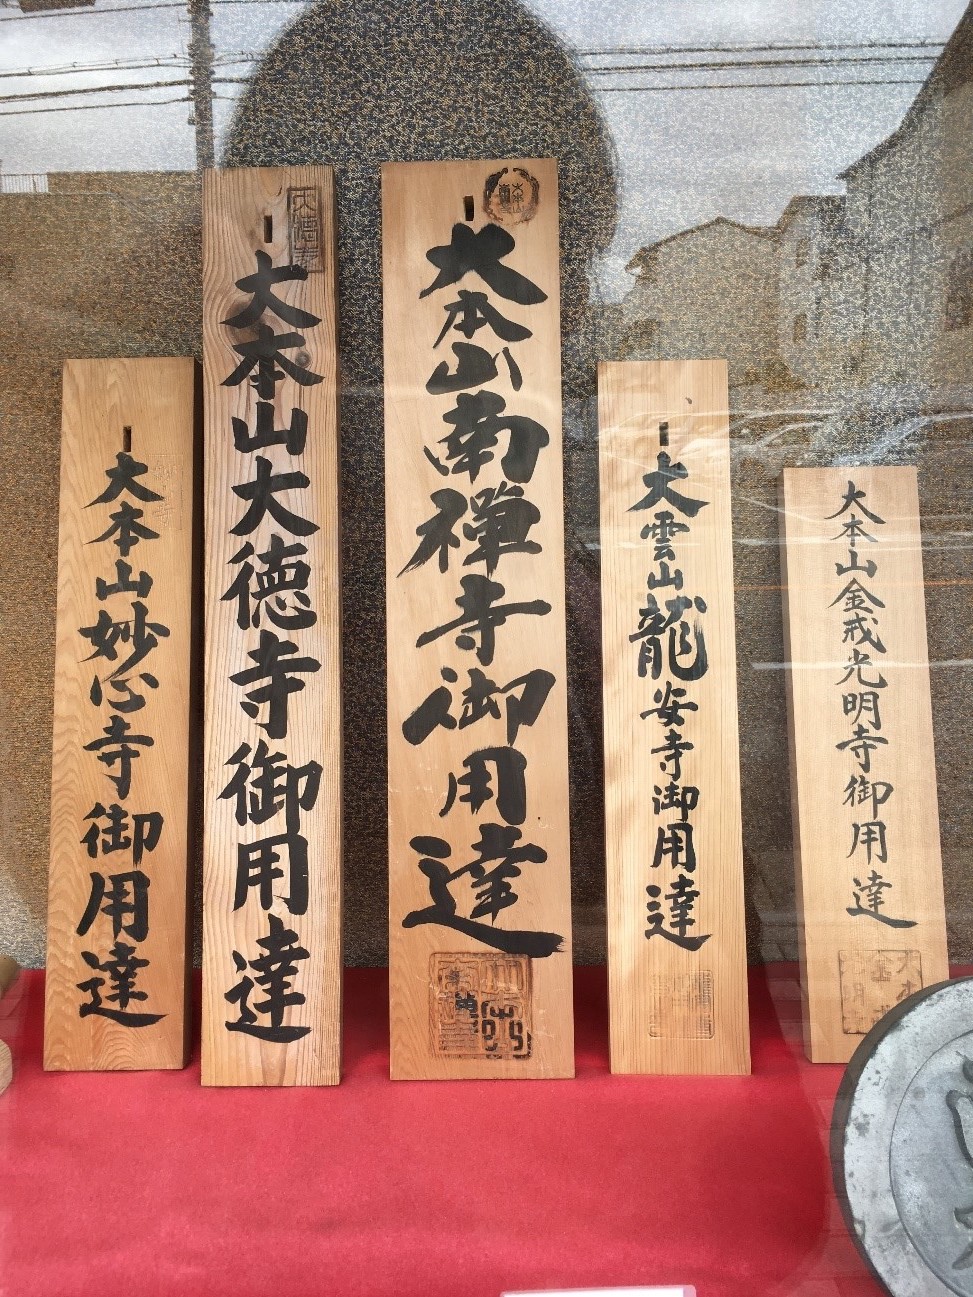 大本山妙心寺御用達
大本山大徳寺御用達
大本山南禅寺御用達
大雲山龍安寺御用達
大本山金戒光明寺御用達